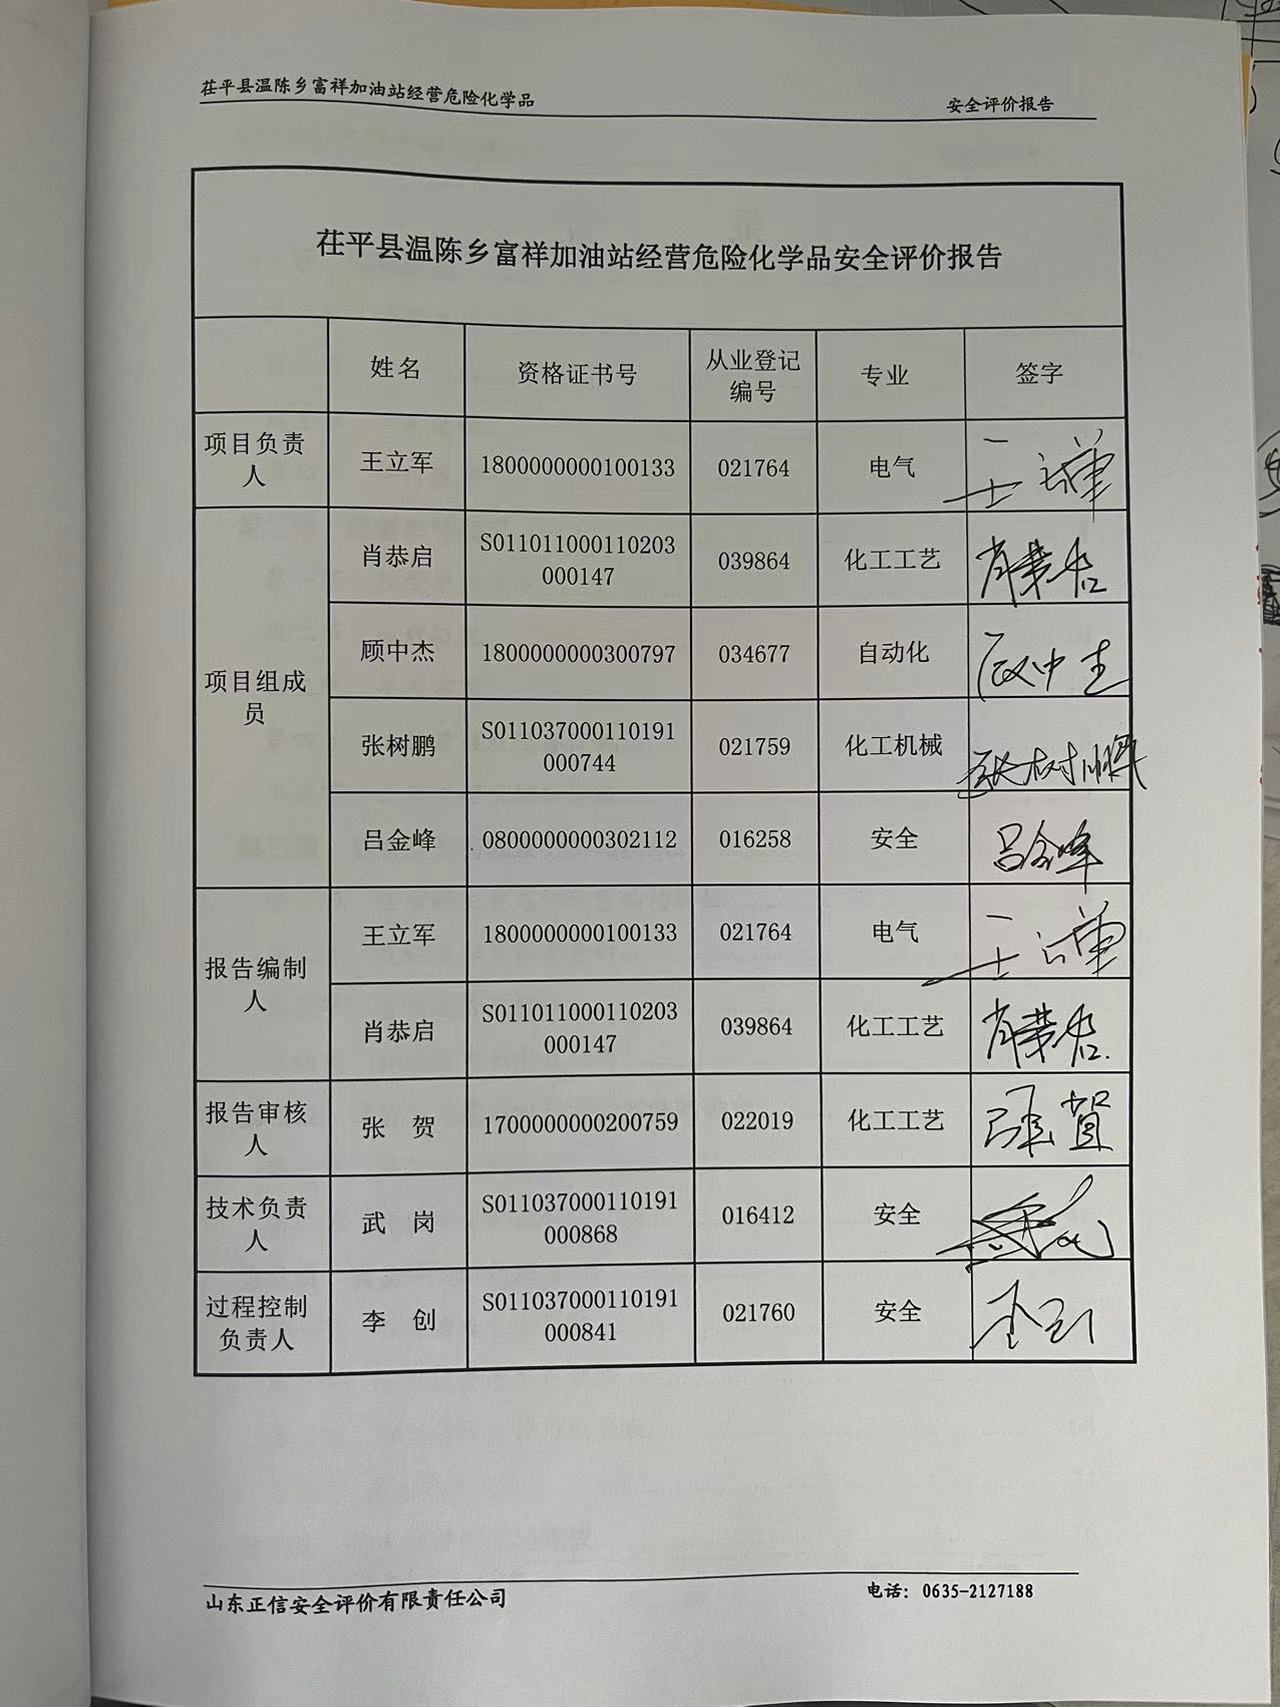 茌平县温陈乡富祥加油站经营危险化学品 安全评价报告
茌平县温陈乡富祥加油站经营危险化学品安全评价报告
姓名 资格证书号 从业登记编号 专业 签字
项目负责人 王立军 1800000000100133 021764 电气 王立军
项目组成员 肖恭启 S011011000110203000147 039864 化工工艺 肖恭启
顾中杰 1800000000300797 034677 自动化 顾中杰
张树鹏 S011037000110191000744 021759 化工机械 张树鹏
吕金峰 0800000000302112 016258 安全 吕金峰
报告编制人 王立军 1800000000100133 021764 电气 王立军
肖恭启 S011011000110203000147 039864 化工工艺 肖恭启
报告审核人 张 贺 1700000000200759 022019 化工工艺 张賀
技术负责人 武 岗 S011037000110191000868 016412 安全
过程控制负责人 李 创 S011037000110191000841 021760 安全 李创
山东正信安全评价有限责任公司 电话：0635-2127188